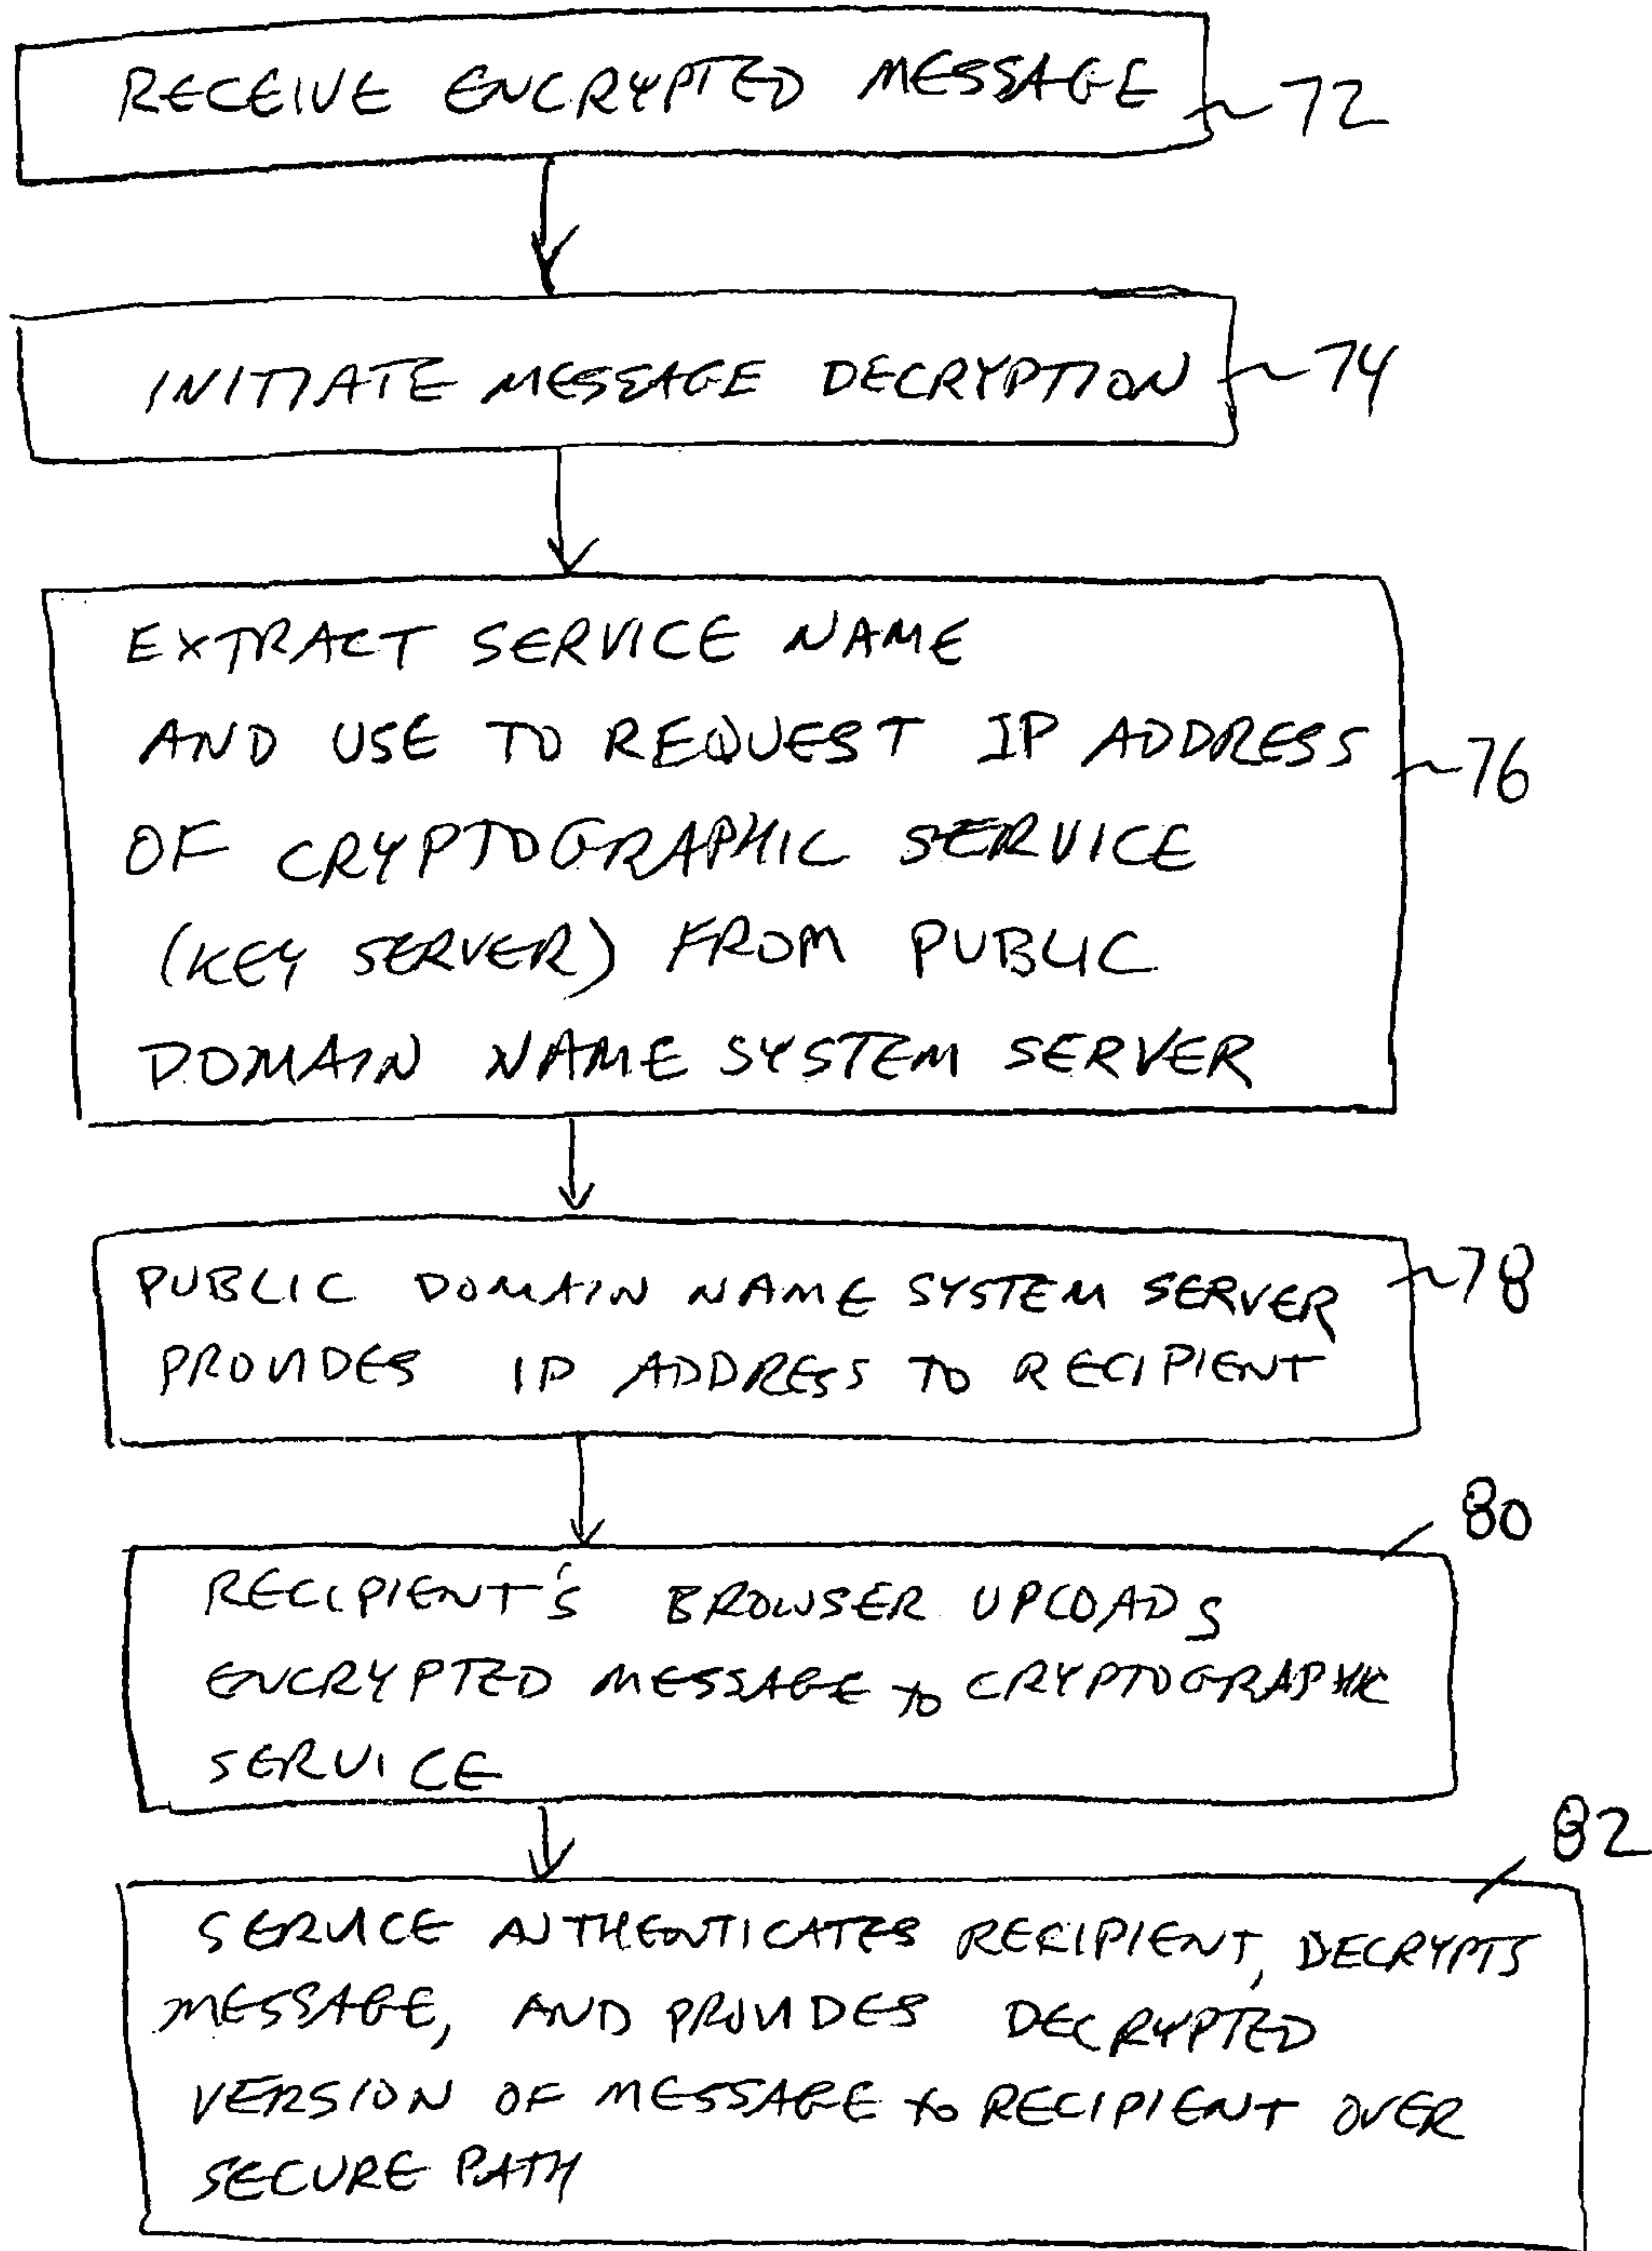 RECEIVE ENCRYPTED MESSAGE ~72
INITIATE MESSAGE DECRYPTION ~74
EXTRACT SERVICE NAME
AND USE TO REQUEST IP ADDRESS
OF CRYPTOGRAPHIC SERVICE
(KEY SERVER) FROM PUBLIC
DOMAIN NAME SYSTEM SERVER
~76
PUBLIC DOMAIN NAME SYSTEM SERVER ~78
PROVIDES IP ADDRESS TO RECIPIENT
80
RECIPIENT'S BROWSER UPLOADS
ENCRYPTED MESSAGE to CRYPTOGRAPHIC
SERVICE
82
SERVICE AUTHENTICATES RECIPIENT, DECRYPTS
MESSAGE, AND PROVIDES DECRYPTED
VERSION OF MESSAGE to RECIPIENT OVER
SECURE PATH